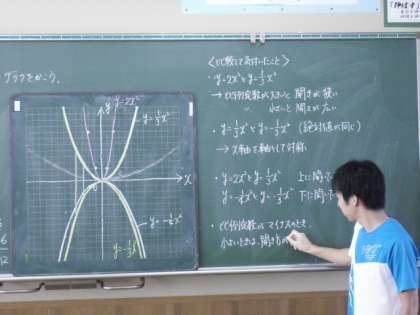 グラフをかこう。
y=2x²
y=⅓x²
x
y=-¼x²
y=-⅓x²
＜比較して気付いたこと＞
・y=2x²とy=⅓x²
→比例定数が大きいと開きが狭い
小さいと開きが広い
・y=⅓x²とy=-⅓x² (絶対値が同じ)
→x軸を軸として対称
・y=2x²とy=⅓x² 上に開いて
y=-¼x²とy=-⅓x² 下に開いて
・比例定数がマイナスのとき、
小さいときは、開き方が
6
12